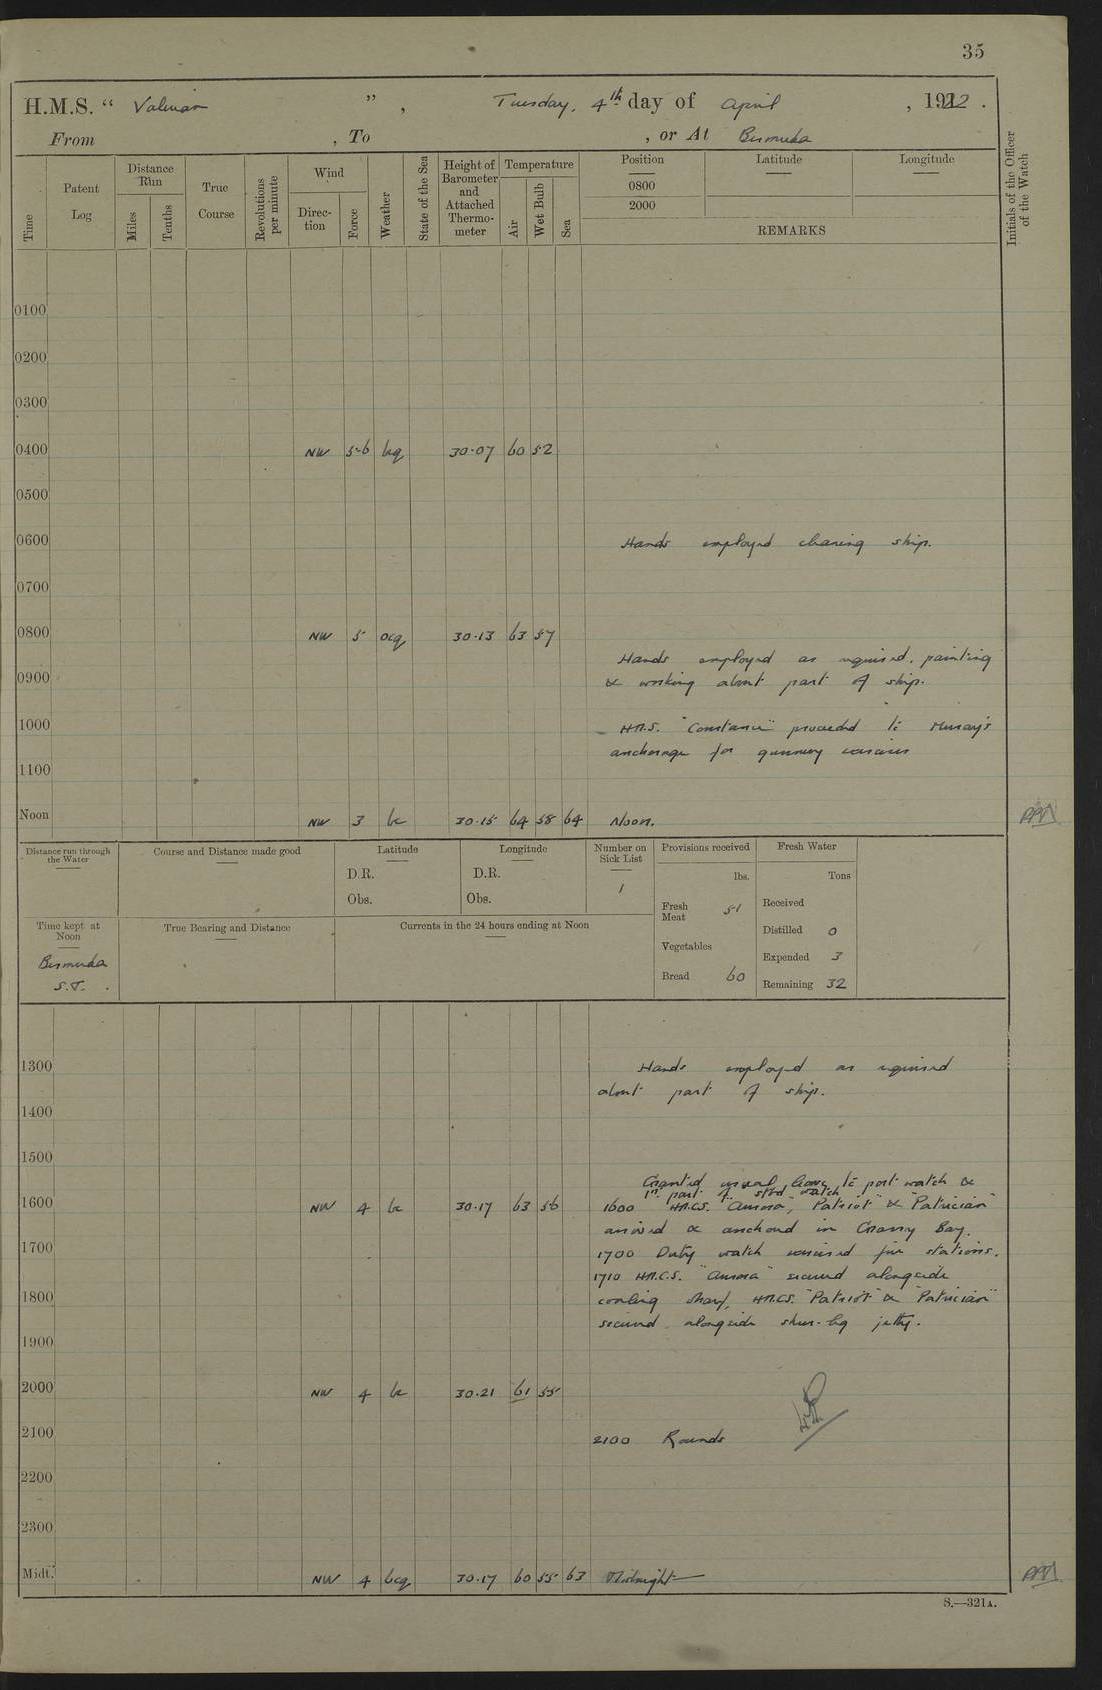 35
H.M.S. “ Valerian ” , Tuesday, 4th day of April , 1922 .
From , To , or At Bermuda
Time
Patent Log
Distance Run
Miles
Tenths
True Course
Revolutions per minute
Wind
Direction
Force
Weather
State of the Sea
Height of Barometer and Attached Thermometer
Temperature
Air
Wet Bulb
Sea
Position
0800
2000
Latitude
Longitude
REMARKS
Initials of the Officer of the Watch
0100
0200
0300
0400 NW 5-6 bcq 30.07 60 52
0500
0600 Hands employed cleaning ship.
0700
0800 NW 5 ocq 30.13 63 57
Hands employed as required, painting
0900 & working about part of ship.
1000 H.M.S. "Constance" proceeded to Murray's
anchorage for gunnery exercises
1100
Noon NW 3 bc 30.15 64 58 64 Noon.
Distance run through the Water
Course and Distance made good
Latitude
D.R.
Obs.
Longitude
D.R.
Obs.
Number on Sick List
1
Provisions received
lbs.
Fresh Meat 51
Vegetables
Bread 60
Fresh Water
Tons
Received
Distilled 0
Expended 3
Remaining 32
Time kept at Noon
Bermuda
S.T.
True Bearing and Distance
Currents in the 24 hours ending at Noon
1300 Hands employed as required
about part of ship.
1400
1500
Granted usual leave to port watch &
1st part of stbd watch
1600 NW 4 bc 30.17 63 56 1600 H.M.C.S. "Aurora", "Patriot" & "Patrician"
arrived & anchored in Grassy Bay.
1700 1700 Duty watch exercised fire stations.
1710 H.M.C.S. "Aurora" secured alongside
1800 coaling wharf, H.M.C.S. "Patriot" & "Patrician"
secured alongside sheer-leg jetty.
1900
2000 NW 4 bc 30.21 61 55
2100 2100 Rounds
2200
2300
Midt. NW 4 bcq 30.17 60 55 63 Midnight
S.—321A.